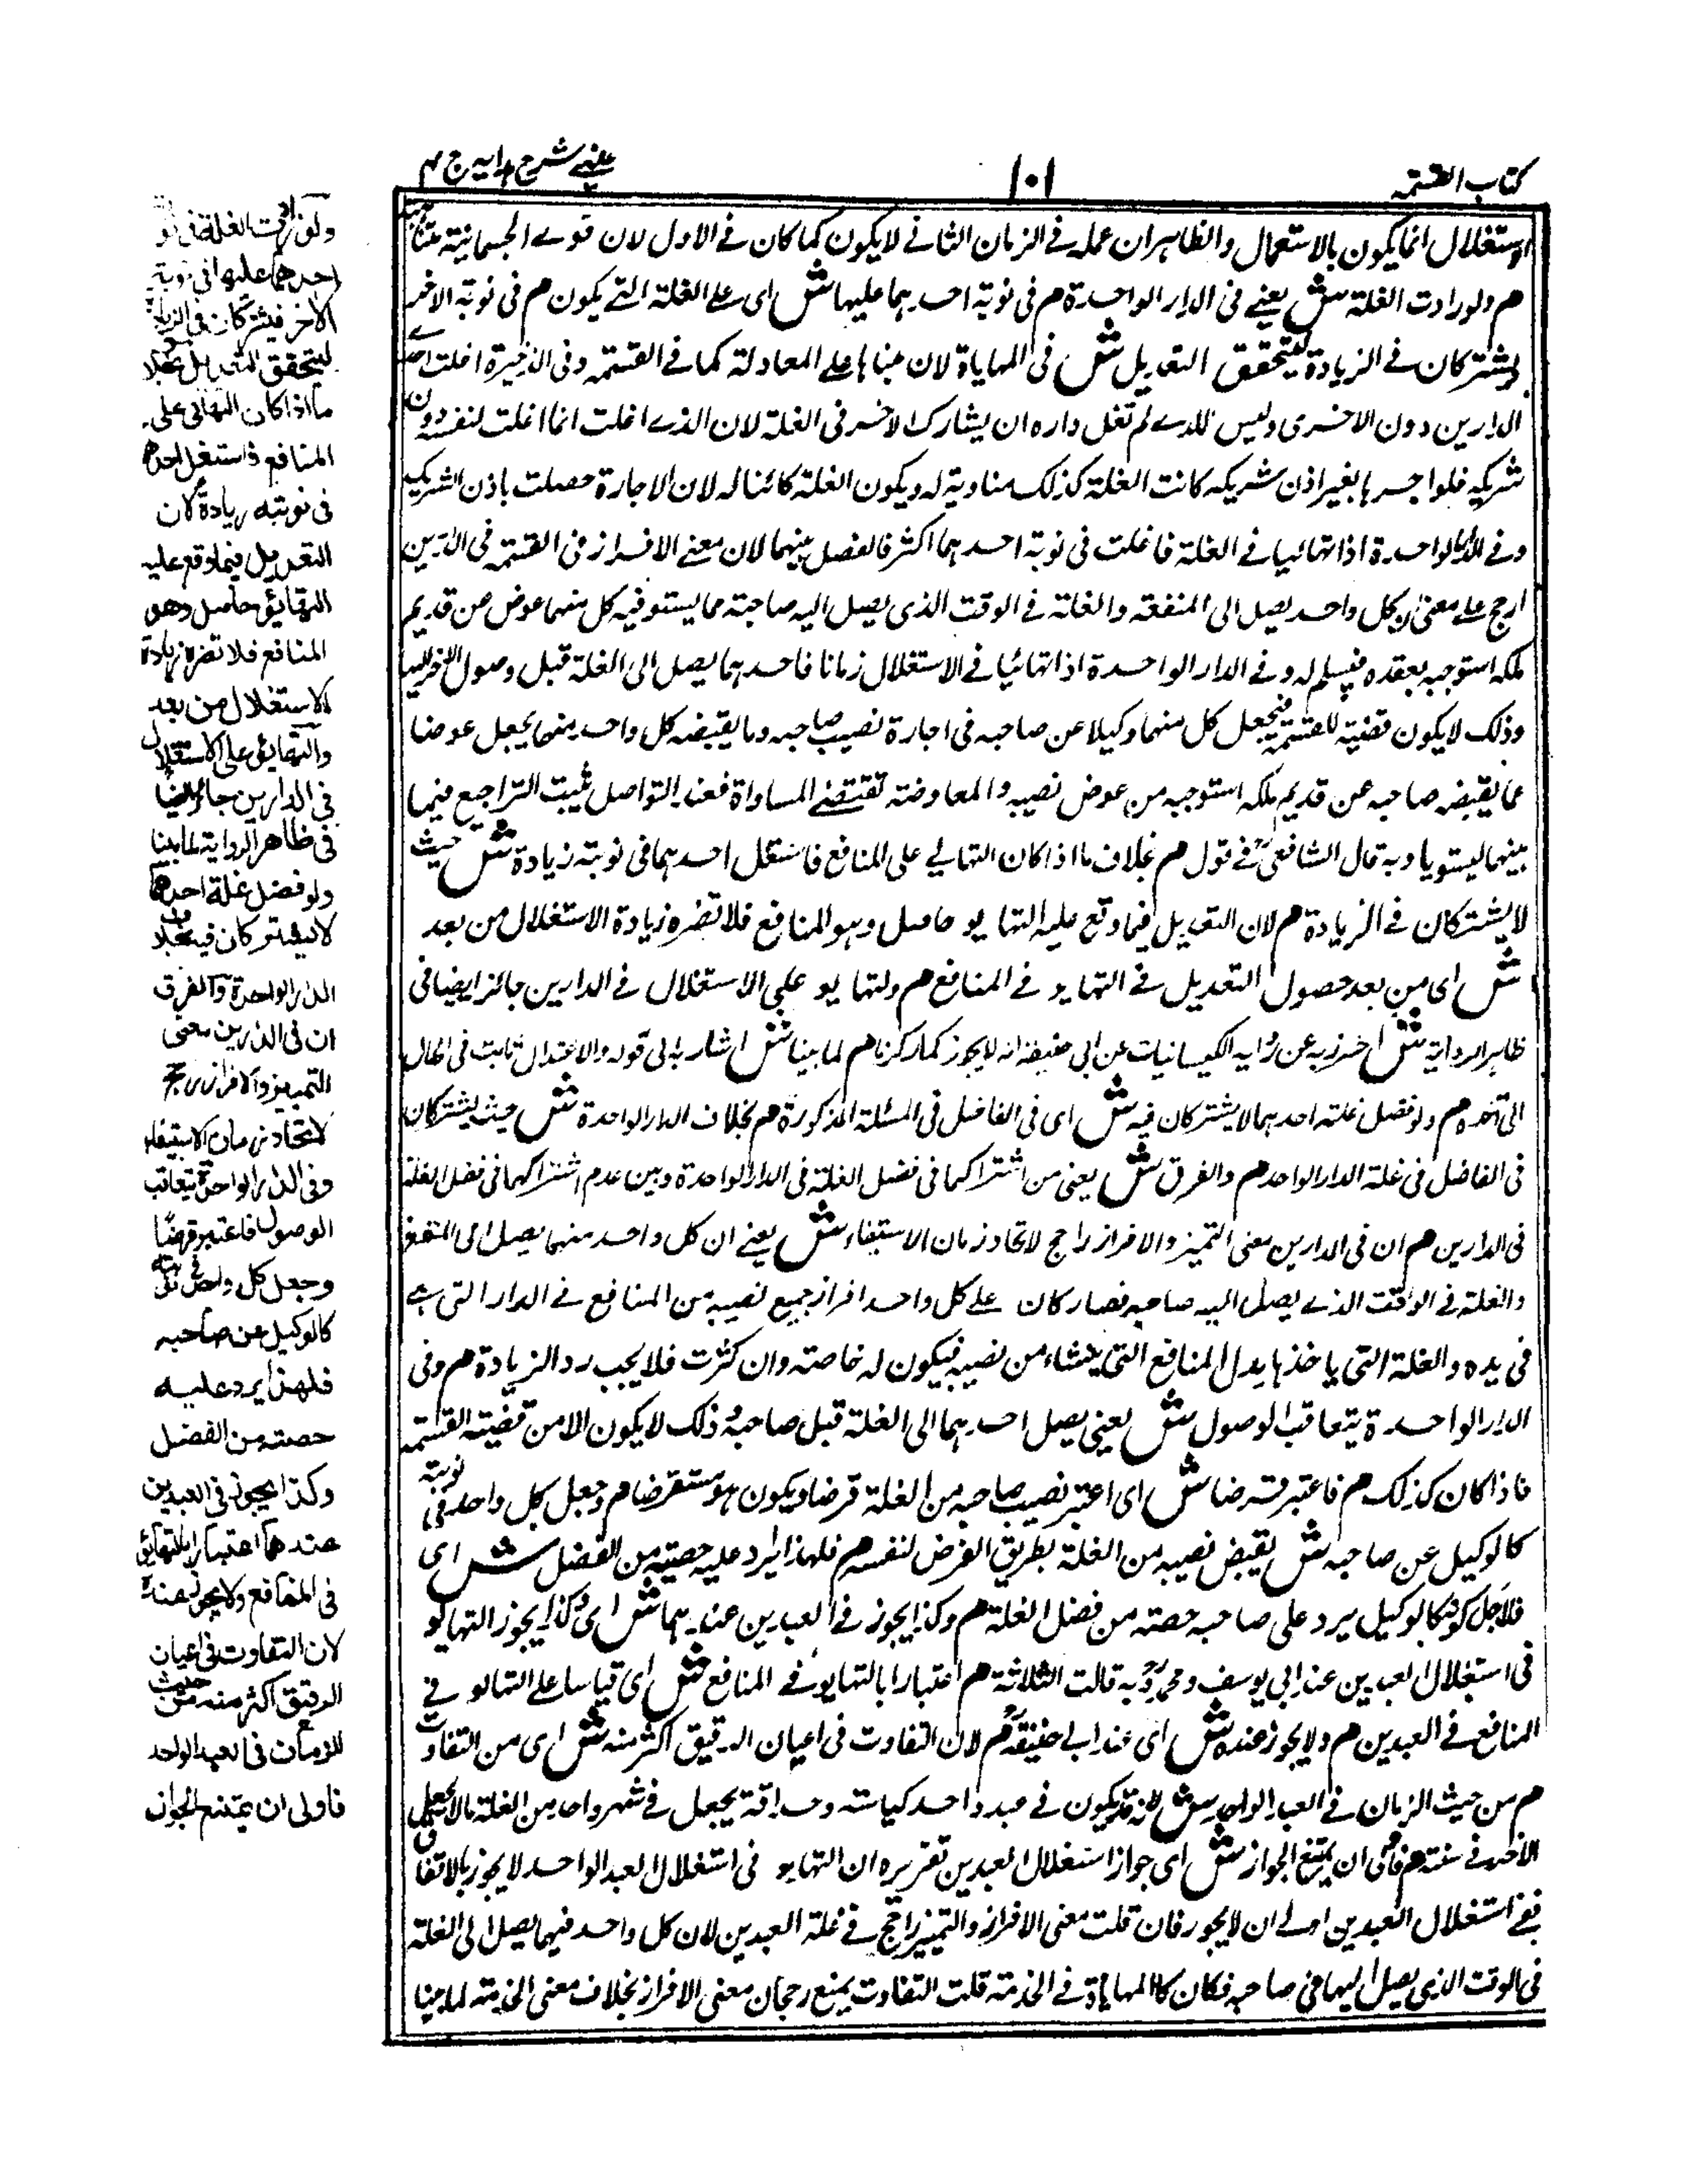 كتاب القسمة
١٠١
عينى شرح هدايه ج ٤
الاستغلال انما يكون بالاستعمال والظاهر ان عمله فى الزمان الثانى لا يكون كما كان فى الاول لان قوى الجسمانية متناهية
م ولو زادت الغلة ش يعنى فى الدار الواحدة م فى نوبة احدهما عليها ش اى على الغلة التى يكون م فى نوبة الاخر
يشتركان فى الزيادة ليتحقق التعديل ش فى المهاياة لان مبناها على المعادلة كما فى القسمة وفى الذخيرة اغلت احدى
الدارين دون الاخرى وليس للذى لم تغل داره ان يشارك الاخر فى الغلة لان الذى اغلت انما اغلت لنفسه دون
شريكه فلو اجرها بغير اذن شريكه كانت الغلة كذلك مناوبة له ويكون الغلة كائنا له لان الاجارة حصلت باذن الشريك
وفى الدار الواحدة اذا تهائيا فى الغلة فاغلت فى نوبة احدهما اكثر فالفضل بينهما لان معنى الافراز فى القسمة فى الدارين
ارجح على معنى ان كل واحد يصل الى المنفعة والغلة فى الوقت الذى يصل اليه صاحبه مما يستوفيه كل منهما عوض عن قديم
ملكه استوجبه بعقده فيسلم له وفى الدار الواحدة اذا تهائيا فى الاستغلال زمانا فاحدهما يصل الى الغلة قبل وصول الاخر اليها
وذلك لا يكون قضية للقسمة فيجعل كل منهما وكيلا عن صاحبه فى اجارة نصيب صاحبه وما يقبضه كل واحد منهما يجعل عوضا
عما يقبضه صاحبه عن قديم ملكه استوجبه من عوض نصيبه والمعاوضة تقتضى المساواة فعند التواصل يثبت التراجع فيما
بينهما ليستويا وبه قال الشافعى فى قول م بخلاف ما اذا كان التهائى على المنافع فاستغل احدهما فى نوبته زيادة ش حيث
لا يشتركان فى الزيادة م لان التعديل فيما وقع عليه التهايو حاصل وهو المنافع فلا تضره زيادة الاستغلال من بعد
ش اى من بعد حصول التعديل فى التهايو فى المنافع م والتهايو على الاستغلال فى الدارين جائز ايضا فى
ظاهر الرواية ش احترز به عن رواية الكيسانيات عن ابى حنيفة انه لا يجوز كما ذكرنا م لما بينا ش اشار به الى قوله والاعتدال ثابت فى الحال
الى آخره م ولو فضل غلة احدهما لا يشتركان فيه ش اى فى الفاضل فى المسئلة المذكورة م بخلاف الدار الواحدة ش حيث يشتركان
فى الفاضل فى غلة الدار الواحدة م والفرق ش يعنى من اشتراكهما فى فضل الغلة فى الدار الواحدة وبين عدم اشتراكهما فى فضل الغلة
فى الدارين م ان فى الدارين معنى التميز والافراز راجح لاتحاد زمان الاستيفاء ش يعنى ان كل واحد منهما يصل الى المنفعة
والغلة فى الوقت الذى يصل اليه صاحبه فصار كان على كل واحد افراز جميع نصيبه من المنافع فى الدار التى هى
فى يده والغلة التى ياخذها بدل المنافع التى ينشاء من نصيبه فيكون له خاصة وان كثرت فلا يجب رد الزيادة م وفى
الدار الواحدة يتعاقب الوصول ش يعنى يصل احدهما الى الغلة قبل صاحبه وذلك لا يكون الا من قضية القسمة
فاذا كان كذلك م فاعتبر قرضا ش اى اعتبر نصيب صاحبه من الغلة قرضا ويكون هو مستقرضا م وجعل كل واحد فى نوبته
كالوكيل عن صاحبه ش يقبض نصيبه من الغلة بطريق القرض لنفسه م فلهذا يرد عليه حصته من الفضل ش اى
فلاجل كونه كالوكيل يرد على صاحبه حصته من فضل الغلة م وكذا يجوز فى العبدين عندهما ش اى وكذا يجوز التهايو
فى استغلال العبدين عند ابى يوسف ومحمد وبه قالت الثلاثة م اعتبارا بالتهايو فى المنافع ش اى قياسا على التهايو فى
المنافع فى العبدين م ولا يجوز عنده ش اى عند ابى حنيفة م لان التفاوت فى اعيان الرقيق اكثر منه ش اى من التفاوت
م من حيث الزمان فى العبد الواحد ش لانه قد يكون فى عبد واحد كياسة وحذاقة يجعل فى شهر واحد من الغلة ما لا يجعل
الاخر فى سنة م فاولى ان يمتنع الجواز ش اى جواز استغلال العبدين تقريره ان التهايو فى استغلال العبد الواحد لا يجوز بالاتفاق
ففى استغلال العبدين اولى ان لا يجوز فان قلت معنى الافراز والتميز راجح فى غلة العبدين لان كل واحد فيهما يصل الى الغلة
فى الوقت الذى يصل اليها فى صاحبه فكان كالمهاياة فى الخدمة قلت التفاوت يمنع رجحان معنى الافراز بخلاف معنى الخدمة لما بينا
ولو زادت الغلة فى نوبة
احدهما عليها فى نوبة
الآخر فيشتركان فى الزيادة
ليتحقق التعديل بخلاف
ما اذا كان التهائى على
المنافع فاستغل احدهما
فى نوبته زيادة لان
التعديل فيما وقع عليه
التهايئ حاصل وهو
المنافع فلا تضره زيادة
الاستغلال من بعد
والتهايئ على الاستغلال
فى الدارين جائز ايضا
فى ظاهر الرواية لما بينا
ولو فضل غلة احدهما
لا يشتركان فيه بخلاف
الدار الواحدة والفرق
ان فى الدارين معنى
التمييز والافراز راجح
لاتحاد زمان الاستيفاء
وفى الدار الواحدة يتعاقب
الوصول فاعتبر قرضا
وجعل كل واحد فى نوبته
كالوكيل عن صاحبه
فلهذا يرد عليه
حصته من الفضل
وكذا يجوز فى العبدين
عندهما اعتبارا بالتهايئ
فى المنافع ولا يجوز عنده
لان التفاوت فى اعيان
الرقيق اكثر منه من حيث
الزمان فى العبد الواحد
فاولى ان يمتنع الجواز